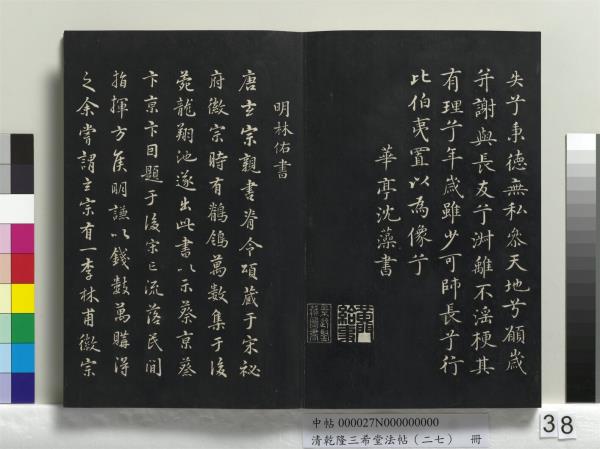 失兮秉德無私參天地兮願歲
并謝與長友兮淑離不淫梗其
有理兮年歲雖少可師長兮行
比伯夷置以為像兮
華亭沈藻書
明林佑書
唐玄宗親書脊令頌藏于宋祕
府徽宗時有鶺鴒萬數集于後
苑龍翔池遂出此書以示蔡京蔡
卞京卞因題于後宋亡流落民間
指揮方侯明謙以錢數萬購得
之余嘗謂玄宗有一李林甫徽宗
中帖 000027N000000000
清乾隆三希堂法帖（二七） 冊
38